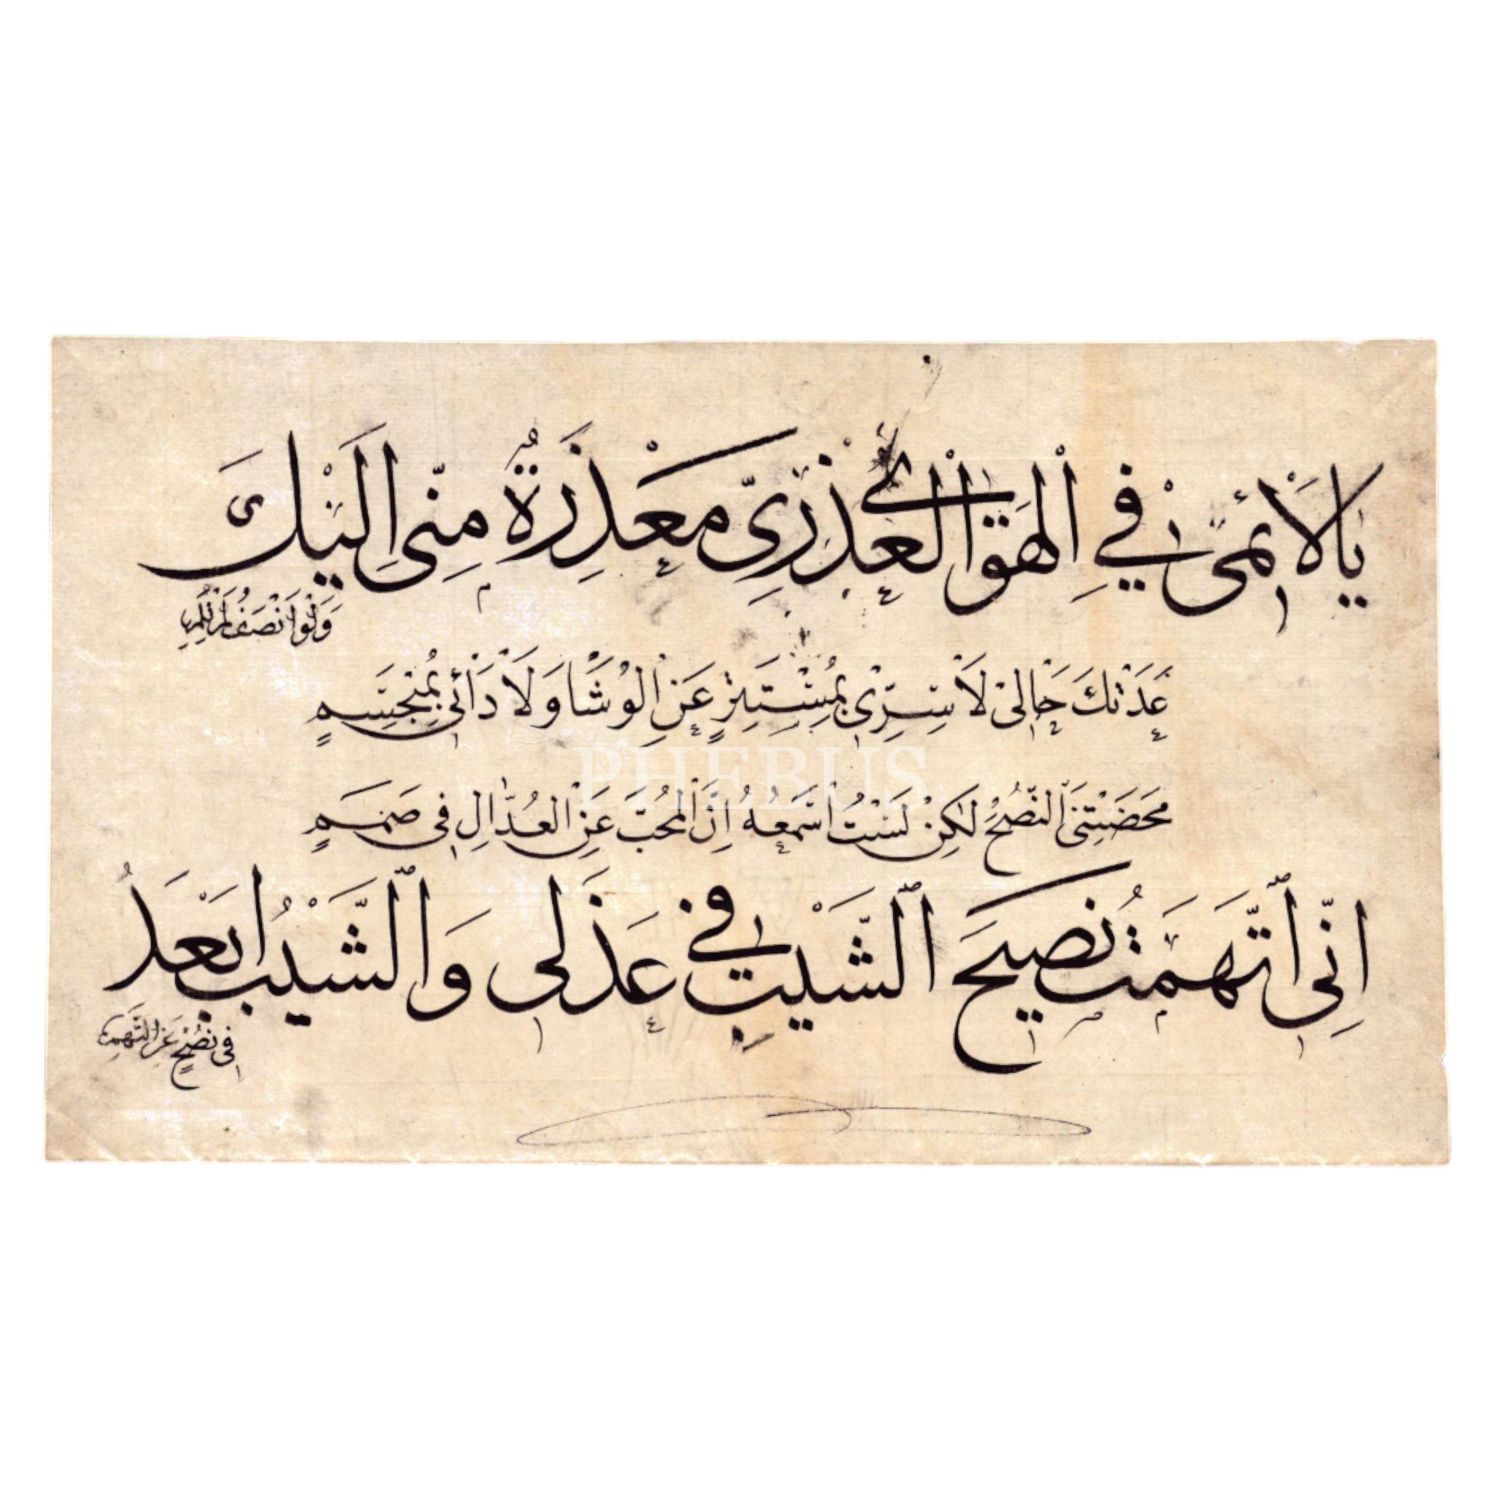 يَا لَائِمِى فِي الْهَوَى الْعُذْرِىِّ مَعْذِرَةً مِنِّى اِلَيْكَ
وَلَوْ اَنْصَفْتَ لَمْ تَلُمِ
عَدَتْكَ حَالِى لَا سِرِّى بِمُسْتَتِرٍ عَنِ الْوُشَاةِ وَلَا دَائِى بِمُنْحَسِمٍ
PHEBUS
مَحَضْتَنِى النُّصْحَ لٰكِنْ لَسْتُ اَسْمَعُهُ اِنَّ الْمُحِبَّ عَنِ الْعُذَّالِ فِى صَمَمٍ
اِنِّى اتَّهَمْتُ نَصِيحَ الشَّيْبِ فِي عَذَلِى وَالشَّيْبُ اَبْعَدُ
فِى نُصْحٍ عَنِ التُّهَمِ